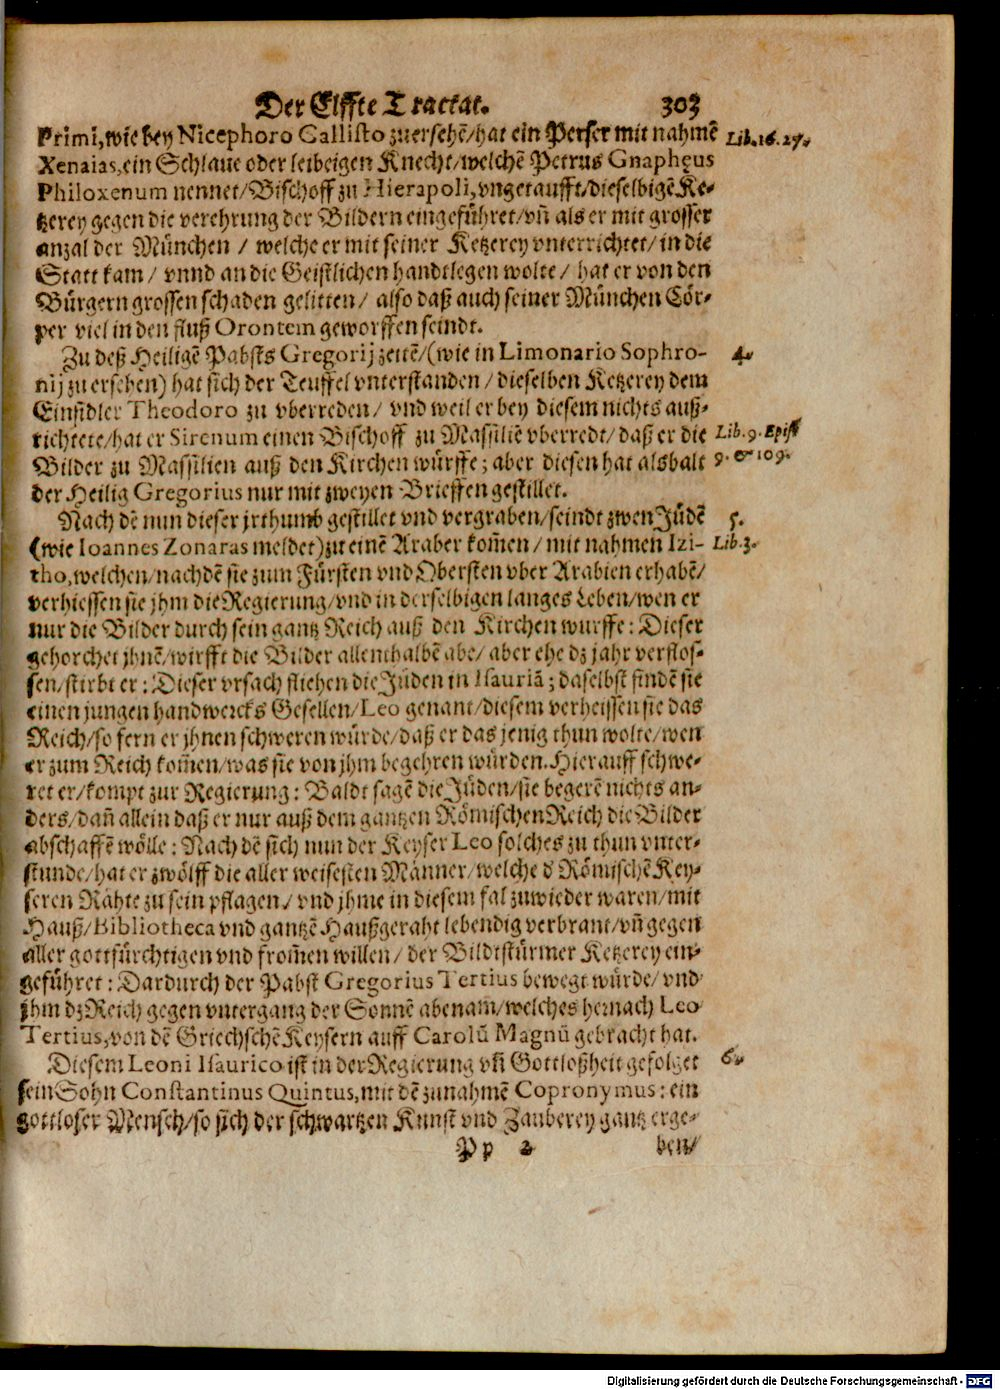 Der Elffte Tractat. 303
Primi, wie bey Nicephoro Callisto zuersehẽ/hat ein Perser mit nahmẽ Lib. 16. 27.
Xenaias, ein Schlaue oder leibeigen Knecht/welchẽ Petrus Gnapheus
Philoxenum nennet/Bischoff zu Hierapoli, vngetaufft/dieselbigẽ Ke-
tzerey gegen die verehrung der Bildern eingeführet/vñ als er mit grosser
anzal der München / welche er mit seiner Ketzerey vnterrichtet/ in die
Statt kam/ vnnd an die Geistlichen handtlegen wolte/ hat er von den
Bürgern grossen schaden gelitten/ also daß auch seiner München Cör-
per viel in den fluß Orontem geworffen seindt.
Zu deß Heiligẽ Pabsts Gregorij zeitẽ/(wie in Limonario Sophro- 4.
nij zu ersehen) hat sich der Teuffel vnterstanden / dieselben Ketzerey dem
Einsidler Theodoro zu vberreden/ vnd weil er bey diesem nichts auß-
richtete/hat er Sirenum einen Bischoff zu Massiliẽ vberredt/ daß er die Lib. 9. Epist
Bilder zu Massilien auß den Kirchen würffe; aber diesen hat alsbalt 9. & 109.
der Heilig Gregorius nur mit zweyen Brieffen gestillet.
Nach dẽ nun dieser jrthumb gestillet vnd vergraben/seindt zwen Jüdẽ 5.
(wie Ioannes Zonaras meldet) zu einẽ Araber kom̃en/ mit nahmen Izi- Lib. 3.
tho, welchen/nachdẽ sie zum Fürsten vnd Obersten vber Arabien erhabẽ/
verhiessen sie jhm die Regierung/vnd in derselbigen langes Leben/wen er
nur die Bilder durch sein gantz Reich auß den Kirchen wurffe: Dieser
gehorchet jhnẽ/wirfft die Bilder allenthalbẽ abe/ aber ehe dz jahr verflos-
sen/stirbt er: Dieser vrsach fliehen die Jüden in Isauriã; daselbst findẽ sie
einen jungen handwercks Gesellen/Leo genant/diesem verheissen sie das
Reich/so fern er jhnen schweren würde/daß er das jenig thun wolte/wen
er zum Reich kom̃en/was sie von jhm begehren würden. Hierauff schwe-
ret er/kompt zur Regierung: Baldt sagẽ die Jüden/sie begerẽ nichts an-
ders/dañ allein daß er nur auß dem gantzen Römischen Reich die Bilder
abschaffẽ wölle: Nach dẽ sich nun der Keyser Leo solches zu thun vnter-
stunde/hat er zwölff die aller weisesten Männer/welche d' Römischẽ Key-
seren Rähte zu sein pflagen/ vnd jhme in diesem fal zuwieder waren/mit
Hauß/Bibliotheca vnd gantzẽ Haußgeraht lebendig verbrant/vñ gegen
aller gottfürchtigen vnd from̃en willen/ der Bildtstürmer Ketzerey ein-
geführet: Dardurch der Pabst Gregorius Tertius bewegt würde/ vnd
jhm dz Reich gegen vntergang der Sonnẽ abenam/welches hernach Leo
Tertius, von dẽ Griechschẽ Keysern auff Carolũ Magnũ gebracht hat.
Diesem Leoni Isaurico ist in der Regierung vñ Gottloßheit gefolget 6.
sein Sohn Constantinus Quintus, mit dẽ zunahmẽ Copronymus: ein
gottloser Mensch/so sich der schwartzen Kunst vnd Zauberey gantz erge-
Pp 2 ben/
Digitalisierung gefördert durch die Deutsche Forschungsgemeinschaft - DFG